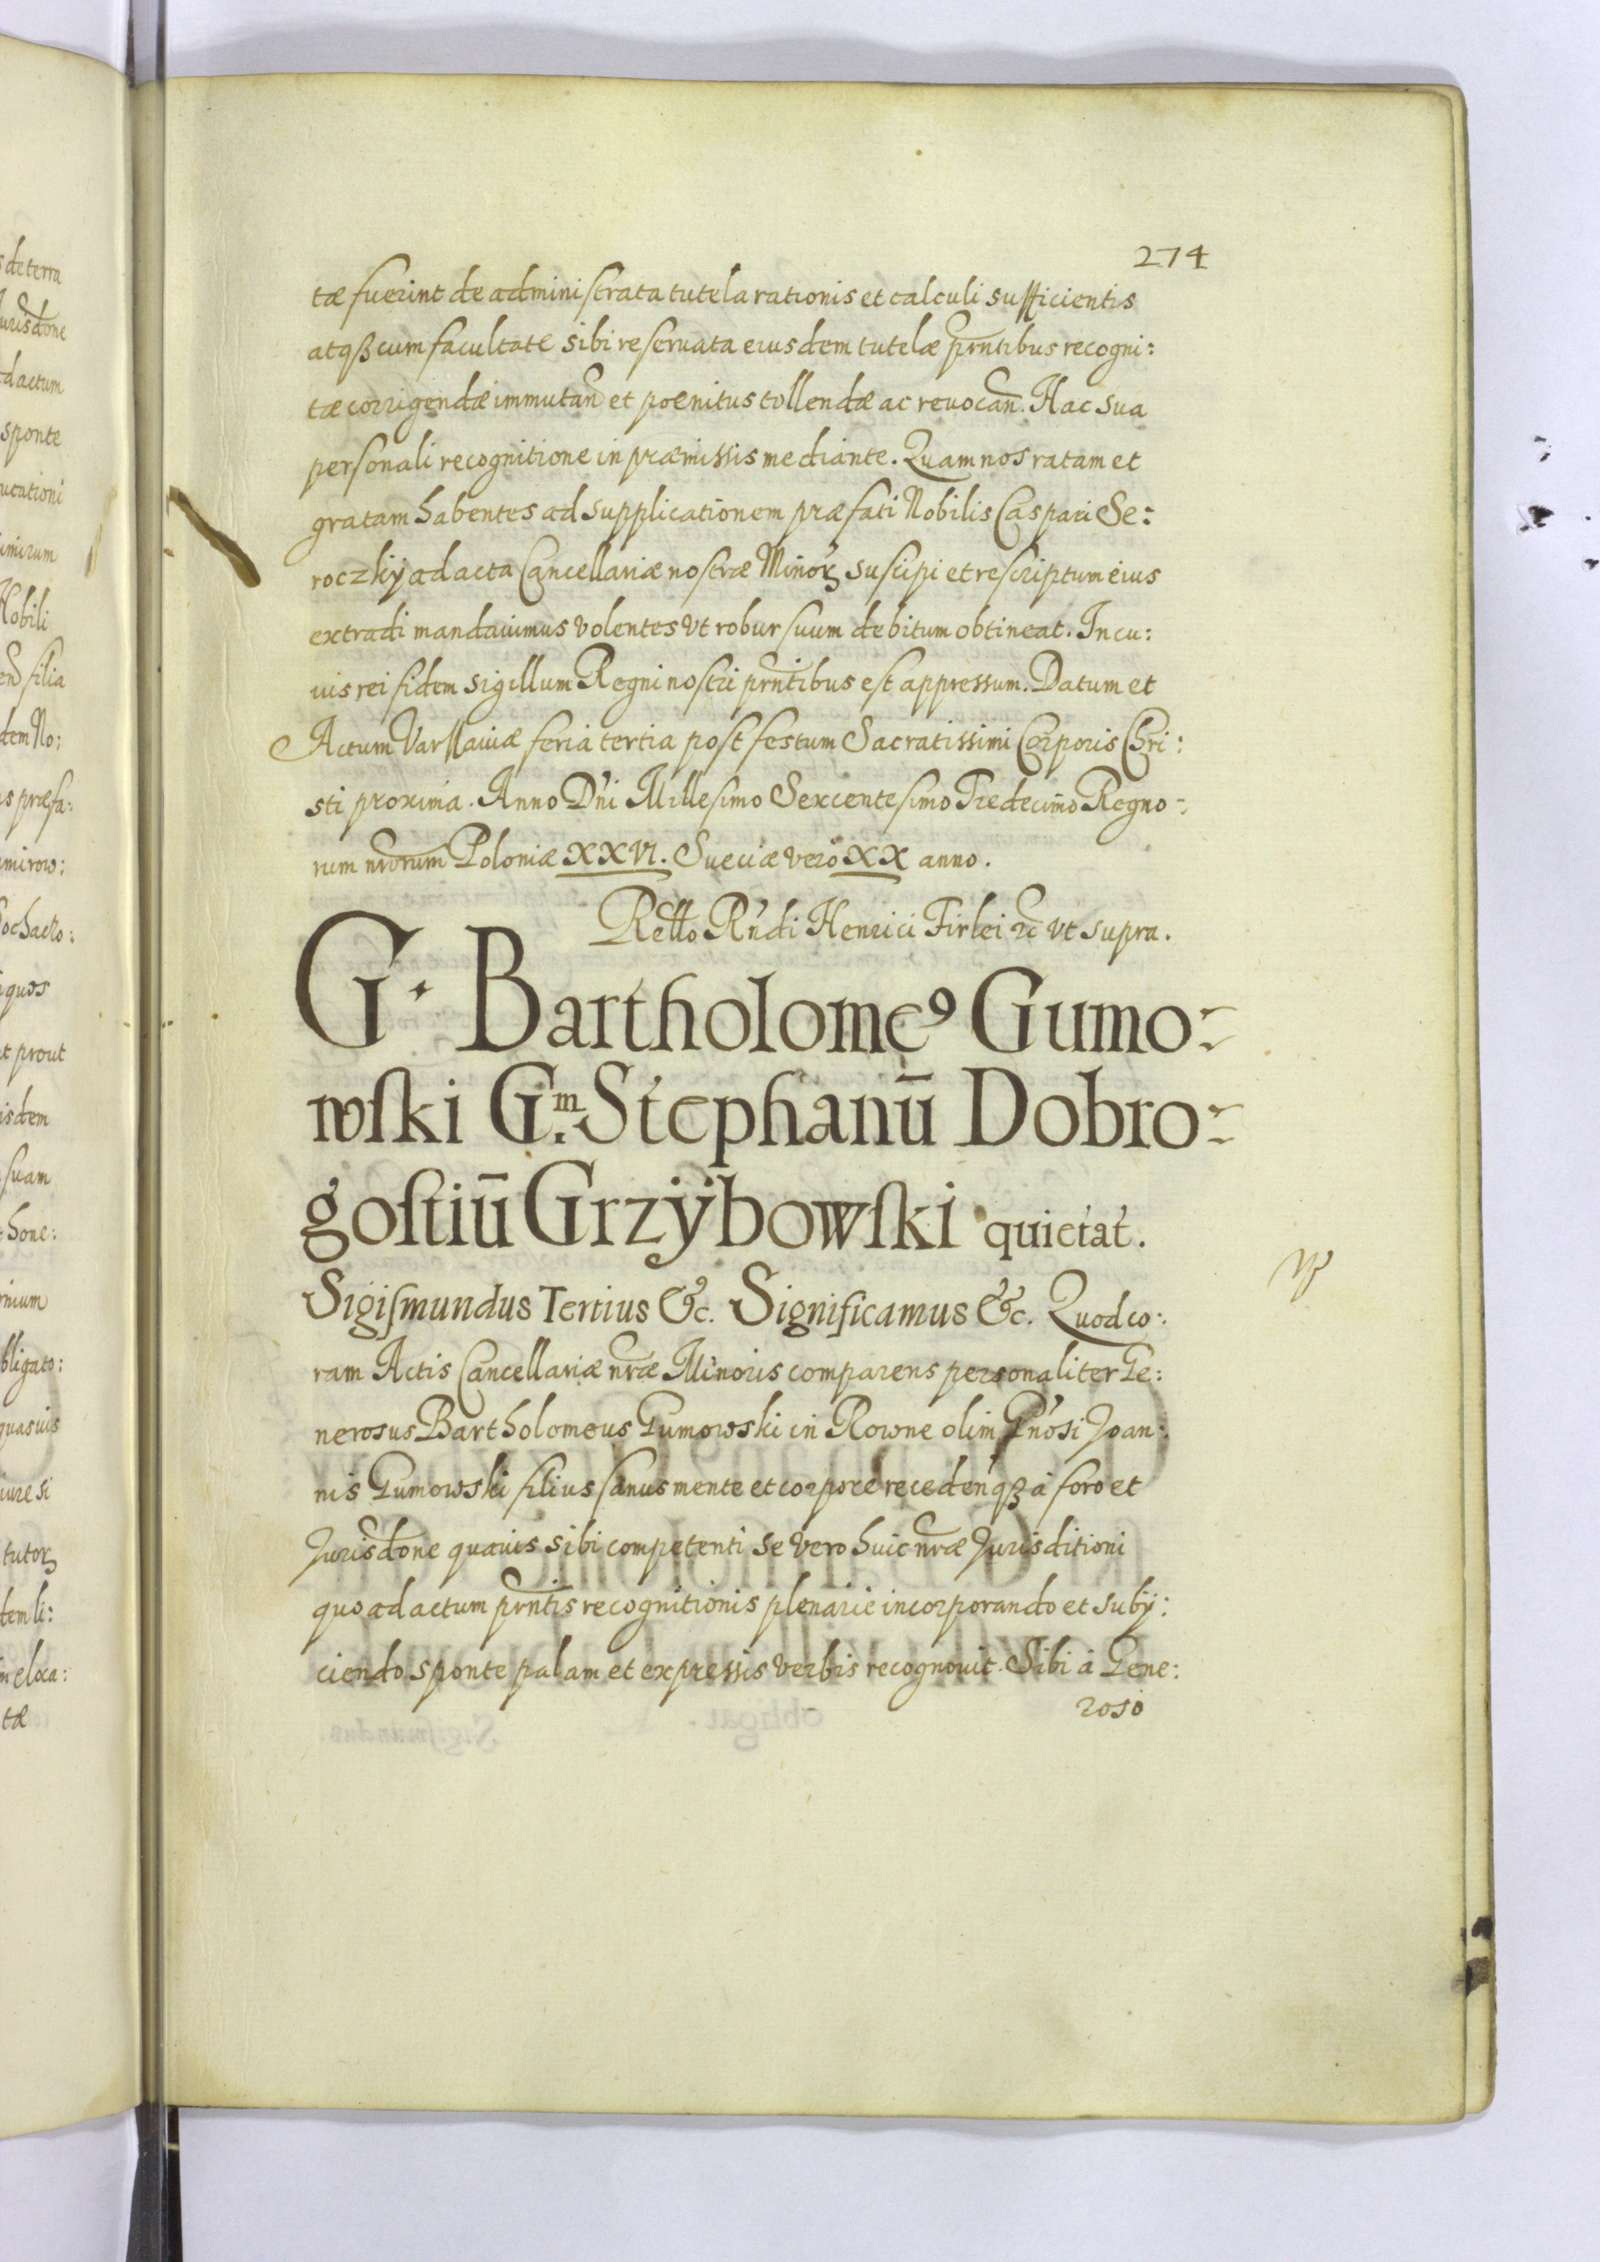 274
tæ fuerint de administrata tutela rationis et calculi sufficientis
atqꝫ cum facultate sibi reservata eiusdem tutelæ prñtibus recogni:
tæ corrigendæ immutañ et poenitus tollendæ ac revocañ. Hac sua
personali recognitione in præmissis mediante. Quam nos ratam et
gratam habentes ad supplicationem præfati Nobilis Caspari Se:
roczkij ad acta Cancellariæ nostræ Minoꝝ suscipi et rescriptum eius
extradi mandavimus volentes vt robur suum debitum obtineat. In cu:
ius rei fidem sigillum Regni nostri prñtibus est appressum. Datum et
Actum Varssaviæ feria tertia post festum Sacratissimi Corporis Chri:
sti proxima. Anno Dñi Millesimo Sexcentesimo Tredecimo Regno:
rum nrõrum Poloniæ XXVI. Sueciæ vero XX anno.
Rello Rñdi Henrici Firlei &c vt supra.
G. Bartholomeꝰ Gumo:
wſki G.m Stephanū Dobro:
goſtiū Grzÿbowſki quietat.
Sigiſmundus Tertius &c. Significamus &c. Quod co:
ram Actis Cancellariæ nræ Minoris comparens personaliter Ge:
nerosus Bartholomeus Gumowski in Rowne olim Gñosi Joan:
nis Gumowski filius sanus mente et corpore recedenqꝫ à foro et
Jurisdone quavis sibi competenti se vero huic nræ Jurisditioni
quo ad actum prñtis recognitionis plenarie incorporando et subij:
ciendo sponte palam et expressis verbis recognovit. Sibi à Gene:
roso
de terra
urisdone
dactum
sponte
Nobili
filia
dem No:
præfa:
mirow:
quos
t prout
isdem
suam
hone:
bligato:
quasvis
iure si
tutoꝝ
dem li:
tæ